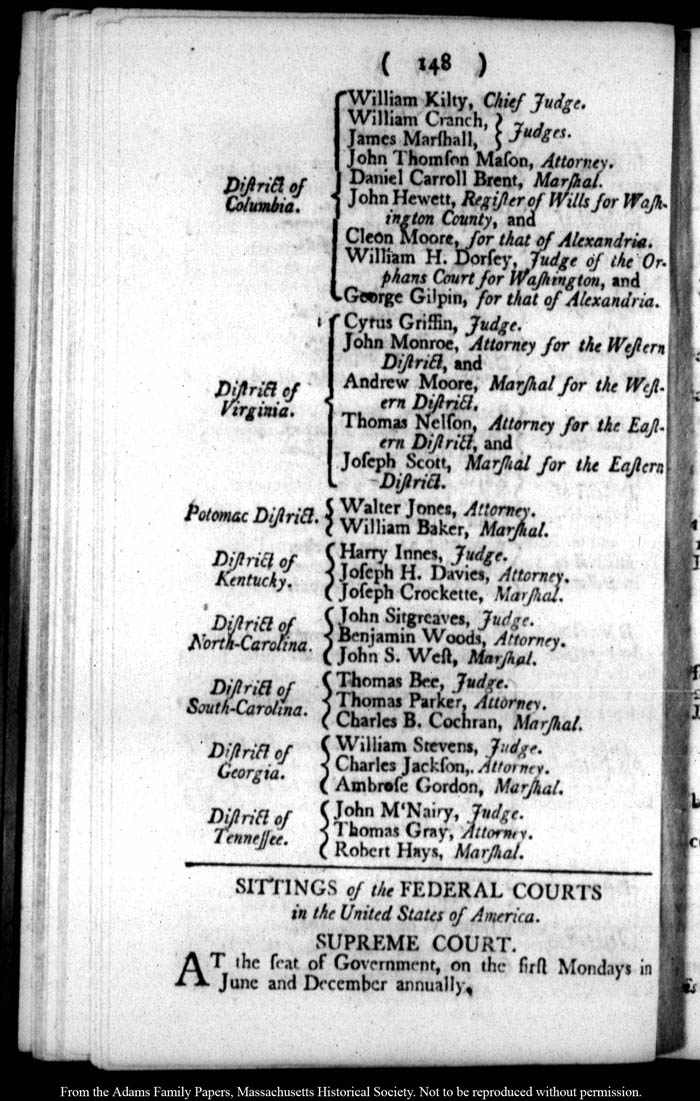 ( 148 )
William Kilty, Chief Judge.
William Cranch,
James Marſhall, } Judges.
John Thomſon Maſon, Attorney.
Daniel Carroll Brent, Marſhal.
District of Columbia. { John Hewett, Regiſter of Wills for Waſh-
ington County, and
Cleon Moore, for that of Alexandria.
William H. Dorſey, Judge of the Or-
phans Court for Waſhington, and
George Gilpin, for that of Alexandria.
Cyrus Griffin, Judge.
John Monroe, Attorney for the Weſtern
Diſtrict, and
Diſtrict of Virginia. { Andrew Moore, Marſhal for the Weſt-
ern Diſtrict.
Thomas Nelſon, Attorney for the Eaſt-
ern Diſtrict, and
Joſeph Scott, Marſhal for the Eaſtern
Diſtrict.
Potomac Diſtrict. { Walter Jones, Attorney.
William Baker, Marſhal.
Diſtrict of { Harry Innes, Judge.
Kentucky. Joſeph H. Davies, Attorney.
Joſeph Crockette, Marſhal.
Diſtrict of { John Sitgreaves, Judge.
North-Carolina. Benjamin Woods, Attorney.
John S. Weſt, Marſhal.
Diſtrict of { Thomas Bee, Judge.
South-Carolina. Thomas Parker, Attorney.
Charles B. Cochran, Marſhal.
Diſtrict of { William Stevens, Judge.
Georgia. Charles Jackſon,. Attorney.
Ambroſe Gordon, Marſhal.
Diſtrict of { John M‘Nairy, Judge.
Tenneſſee. Thomas Gray, Attorney.
Robert Hays, Marſhal.
SITTINGS of the FEDERAL COURTS
in the United States of America.
SUPREME COURT.
AT the ſeat of Government, on the firſt Mondays in
June and December annually.
From the Adams Family Papers, Massachusetts Historical Society. Not to be reproduced without permission.